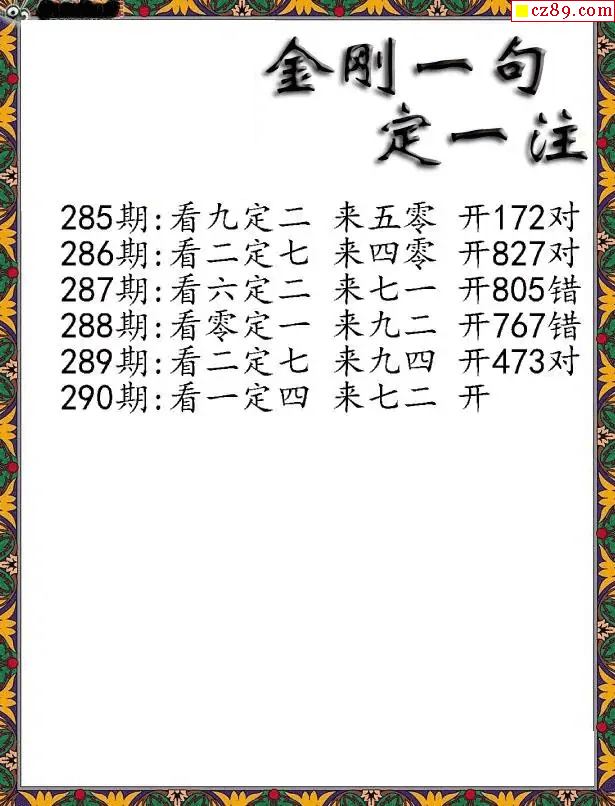 cz89.com
金刚一句
定一注
285期:看九定二 来五零 开172对
286期:看二定七 来四零 开827对
287期:看六定二 来七一 开805错
288期:看零定一 来九二 开767错
289期:看二定七 来九四 开473对
290期:看一定四 来七二 开